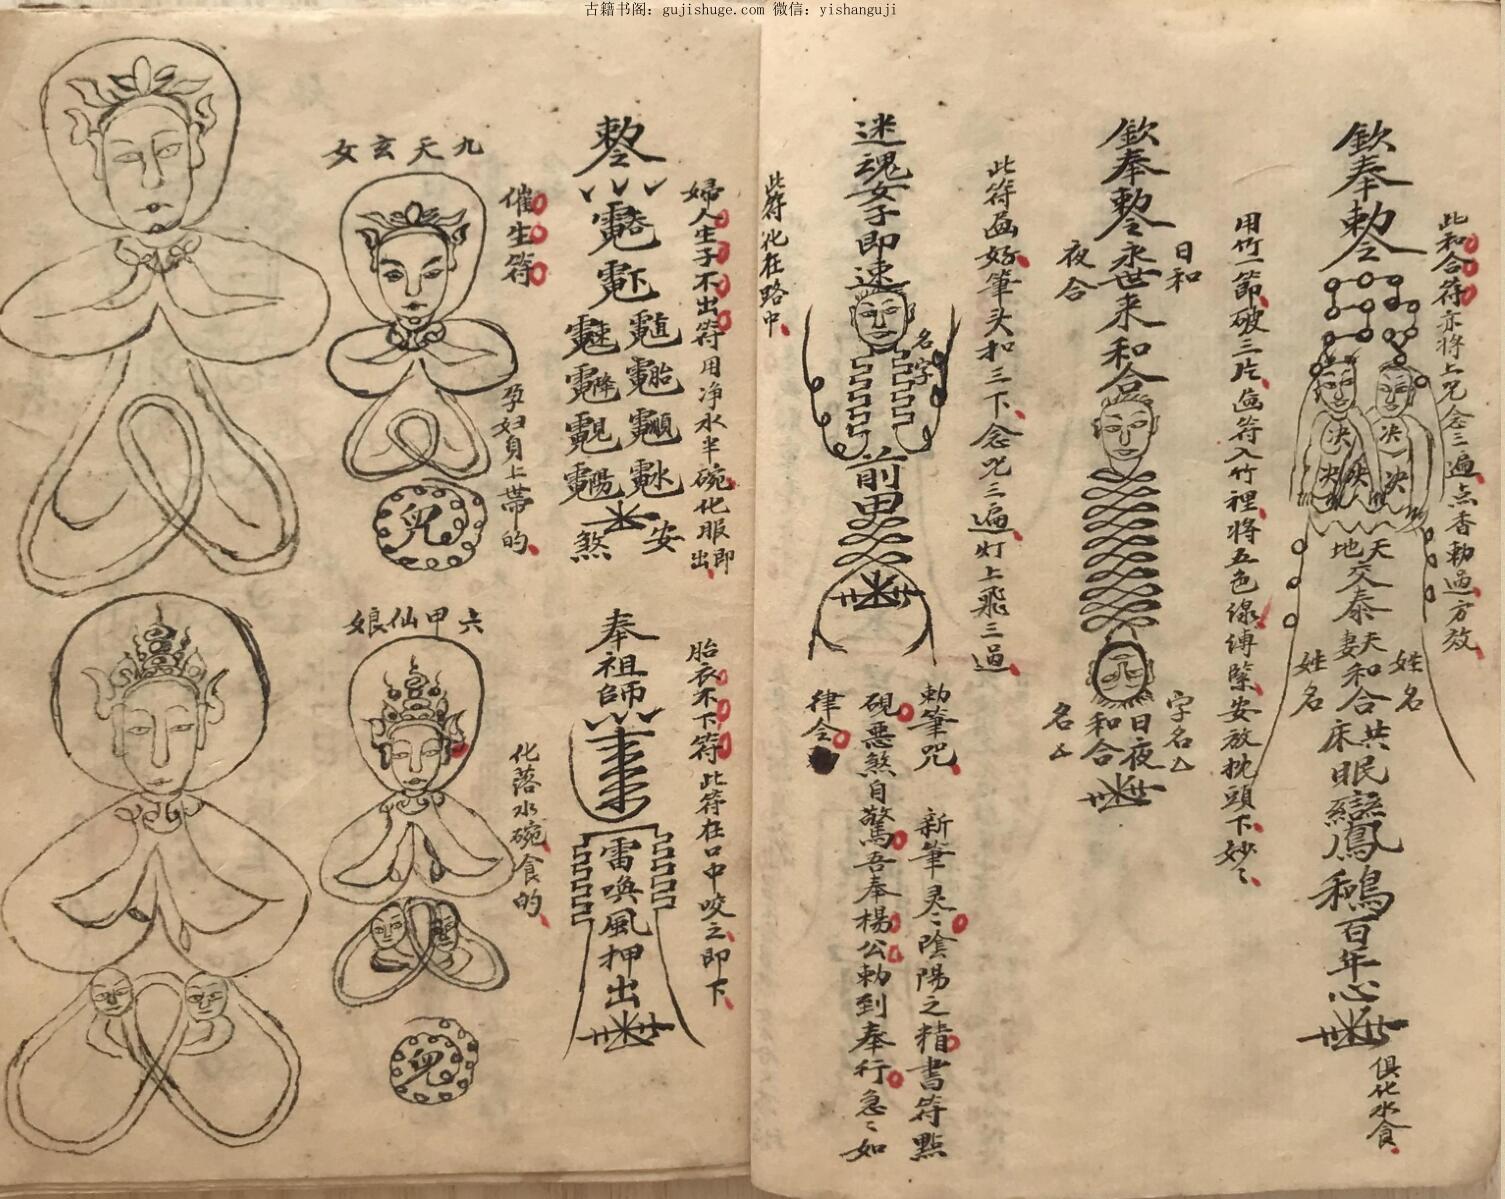 古籍书阁：gujishuge.com 微信：yishanguji
此和合符亦将上咒念三遍点香勅過方效
欽奉勅令
決決
決決
天地交泰
天妻和合
共床眠
鳳
百年心
姓名
姓名
俱化水食
用竹一節破三片画符入竹裡将五色線缚緊安放枕頭下妙〻
欽奉勅令永世来和合
日和
夜合
日夜和合
字名厶
名厶
此符画好筆头扣三下念咒三遍灯上飛三過
迷魂女子即速
名字
前甲
勅筆咒
新筆灵〻陰陽之精書符點
硯惡煞自驚吾奉楊公勅到奉行急〻如
律令
此符化在路中
婦人生子不出符用净水半碗化服即出
勅令
安
煞
胎衣不下符此符在口中咬之即下
奉祖師
雷喚風押出
催生符
孕妇身上带的
九天玄女
兒
化落水碗食的
六甲仙娘
兒